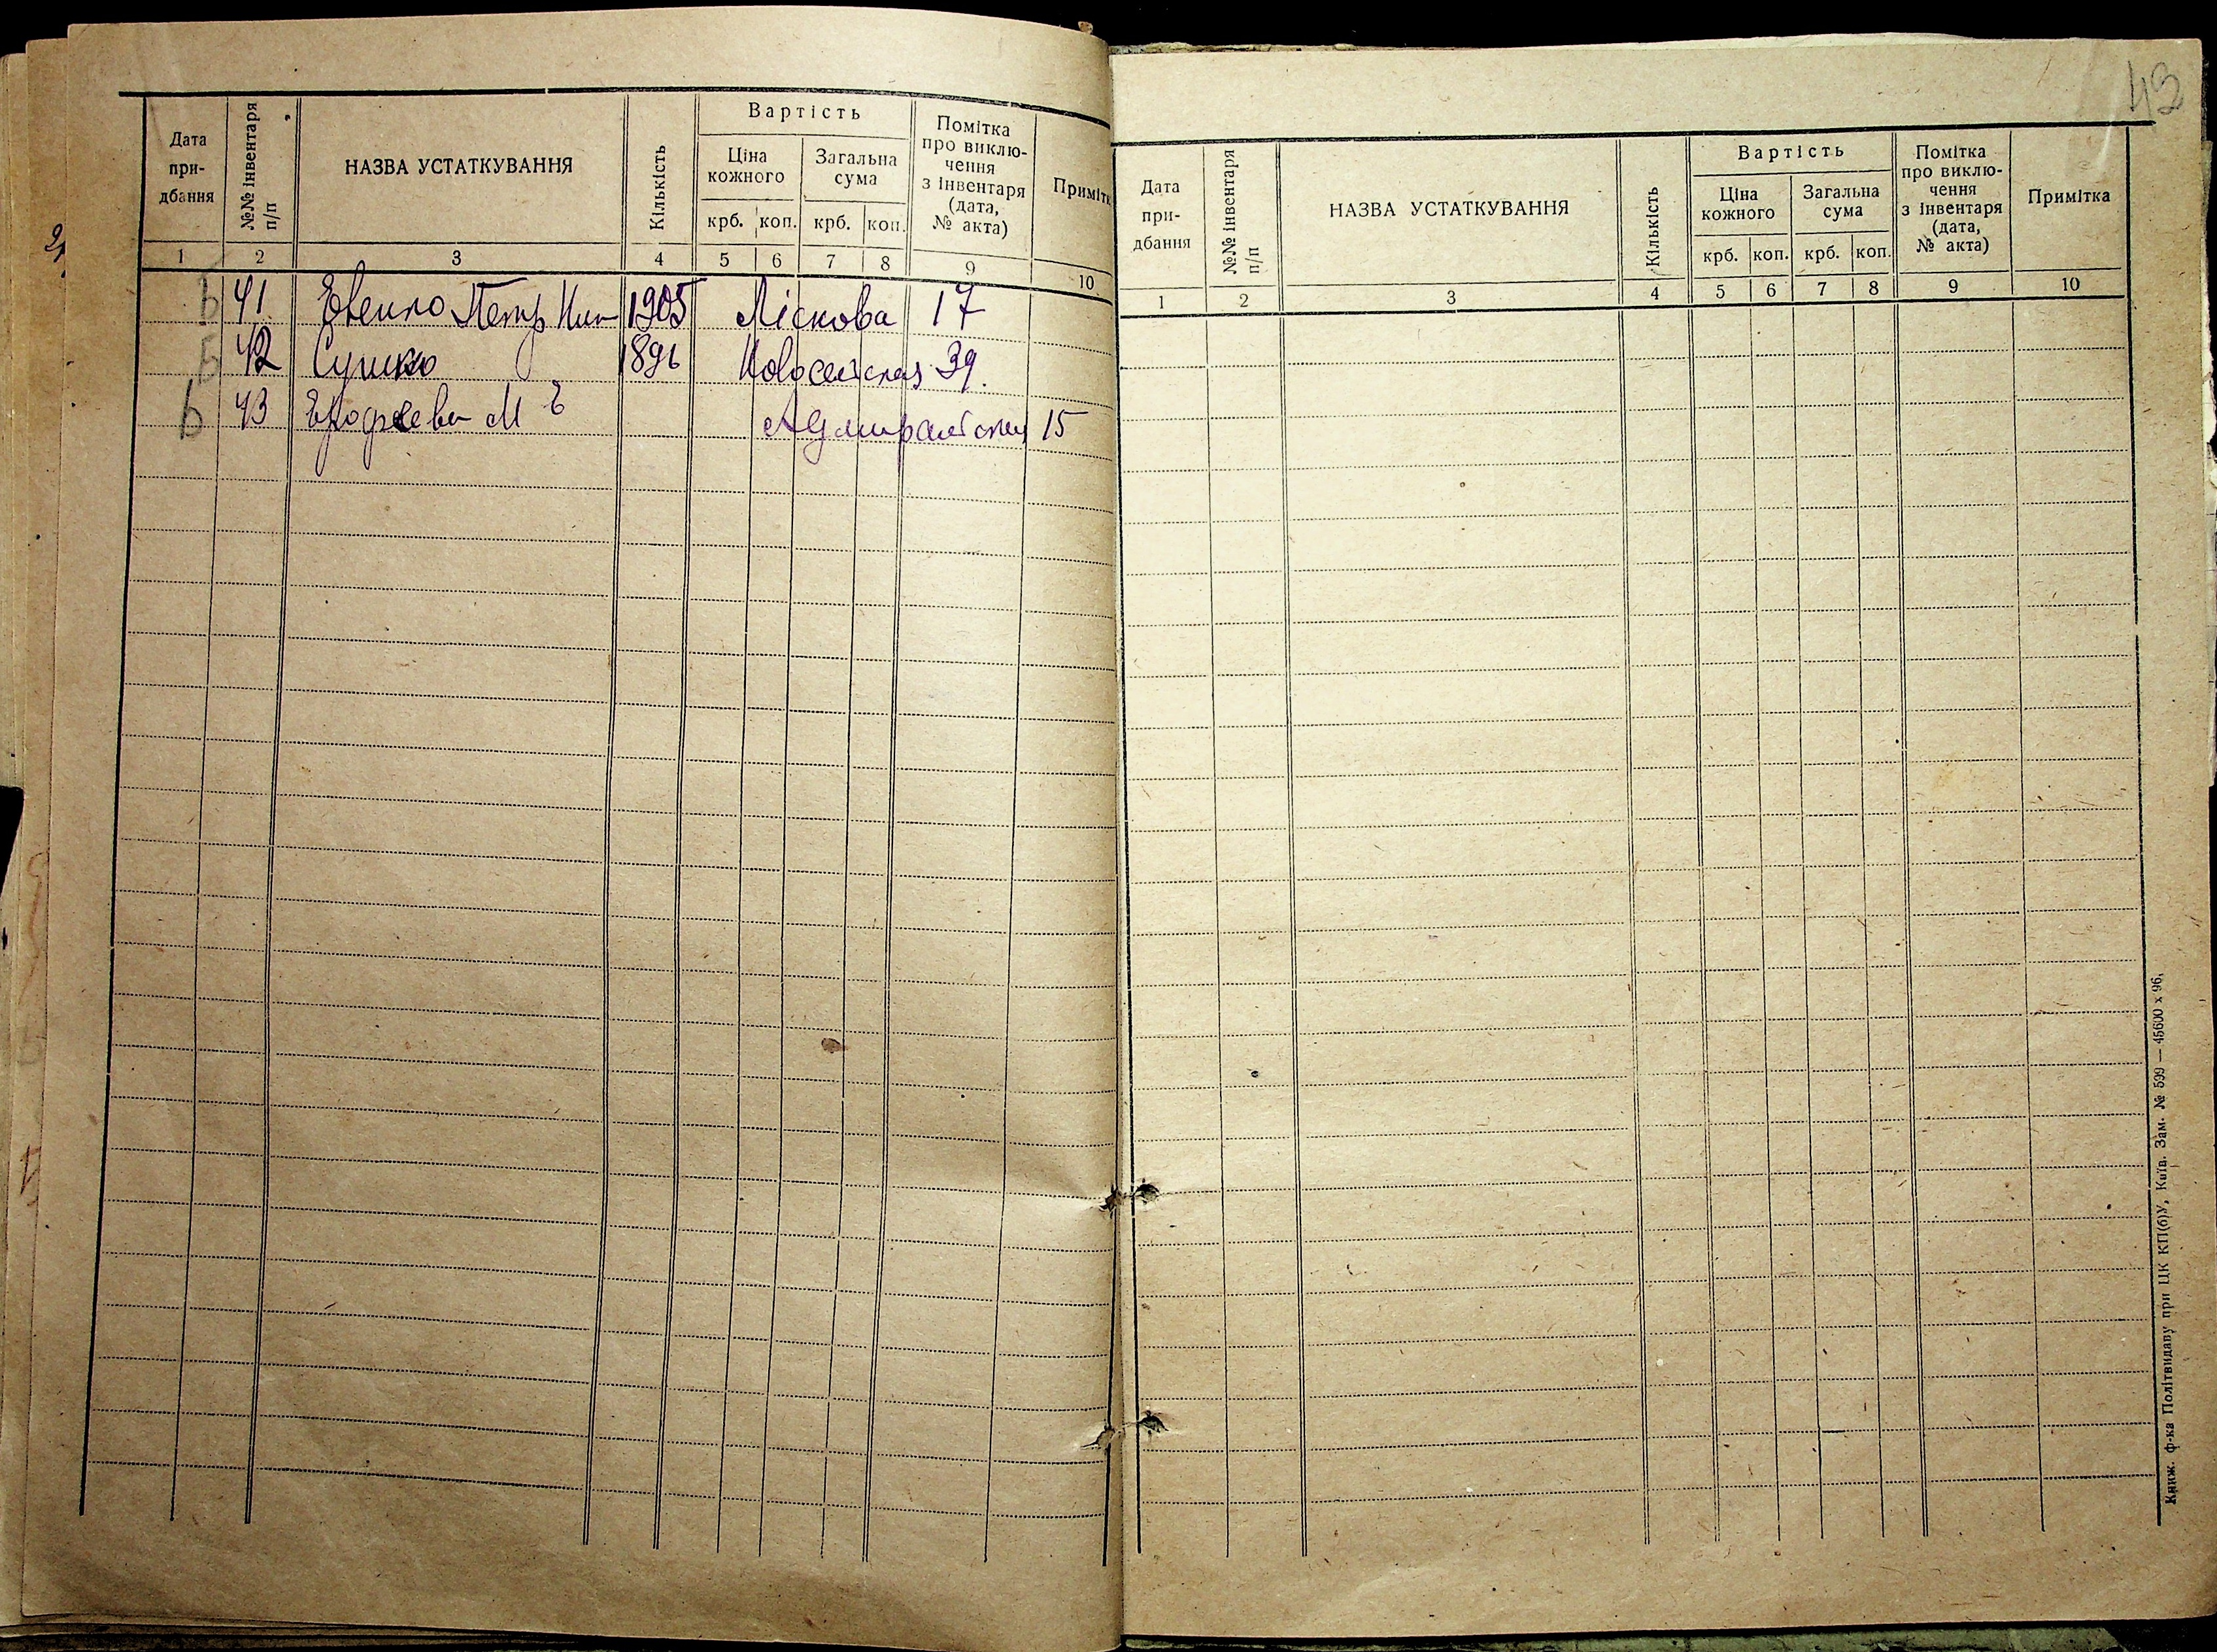 43
Вартість
Дата при- дбання
№№ інвентаря п/п
НАЗВА УСТАТКУВАННЯ
Кількість
Ціна кожного
Загальна сума
Помітка про виклю- чення з інвентаря (дата, № акта)
Примітк
крб. коп. крб. коп.
1 2 3 4 5 6 7 8 9 10
Б 41 Евенко Петр 1905 Ліскова 17
Б 42 Сушко 1896 39
Б 43 М Е 15
Вартість
Дата при- дбання
№№ інвентаря п/п
НАЗВА УСТАТКУВАННЯ
Кількість
Ціна кожного
Загальна сума
Помітка про виклю- чення з інвентаря (дата, № акта)
Примітка
крб. коп. крб. коп.
1 2 3 4 5 6 7 8 9 10
Книж. ф-ка Політвидаву при ЦК КП(б)У, Київ. Зам. № 599 — 45600 х 96,